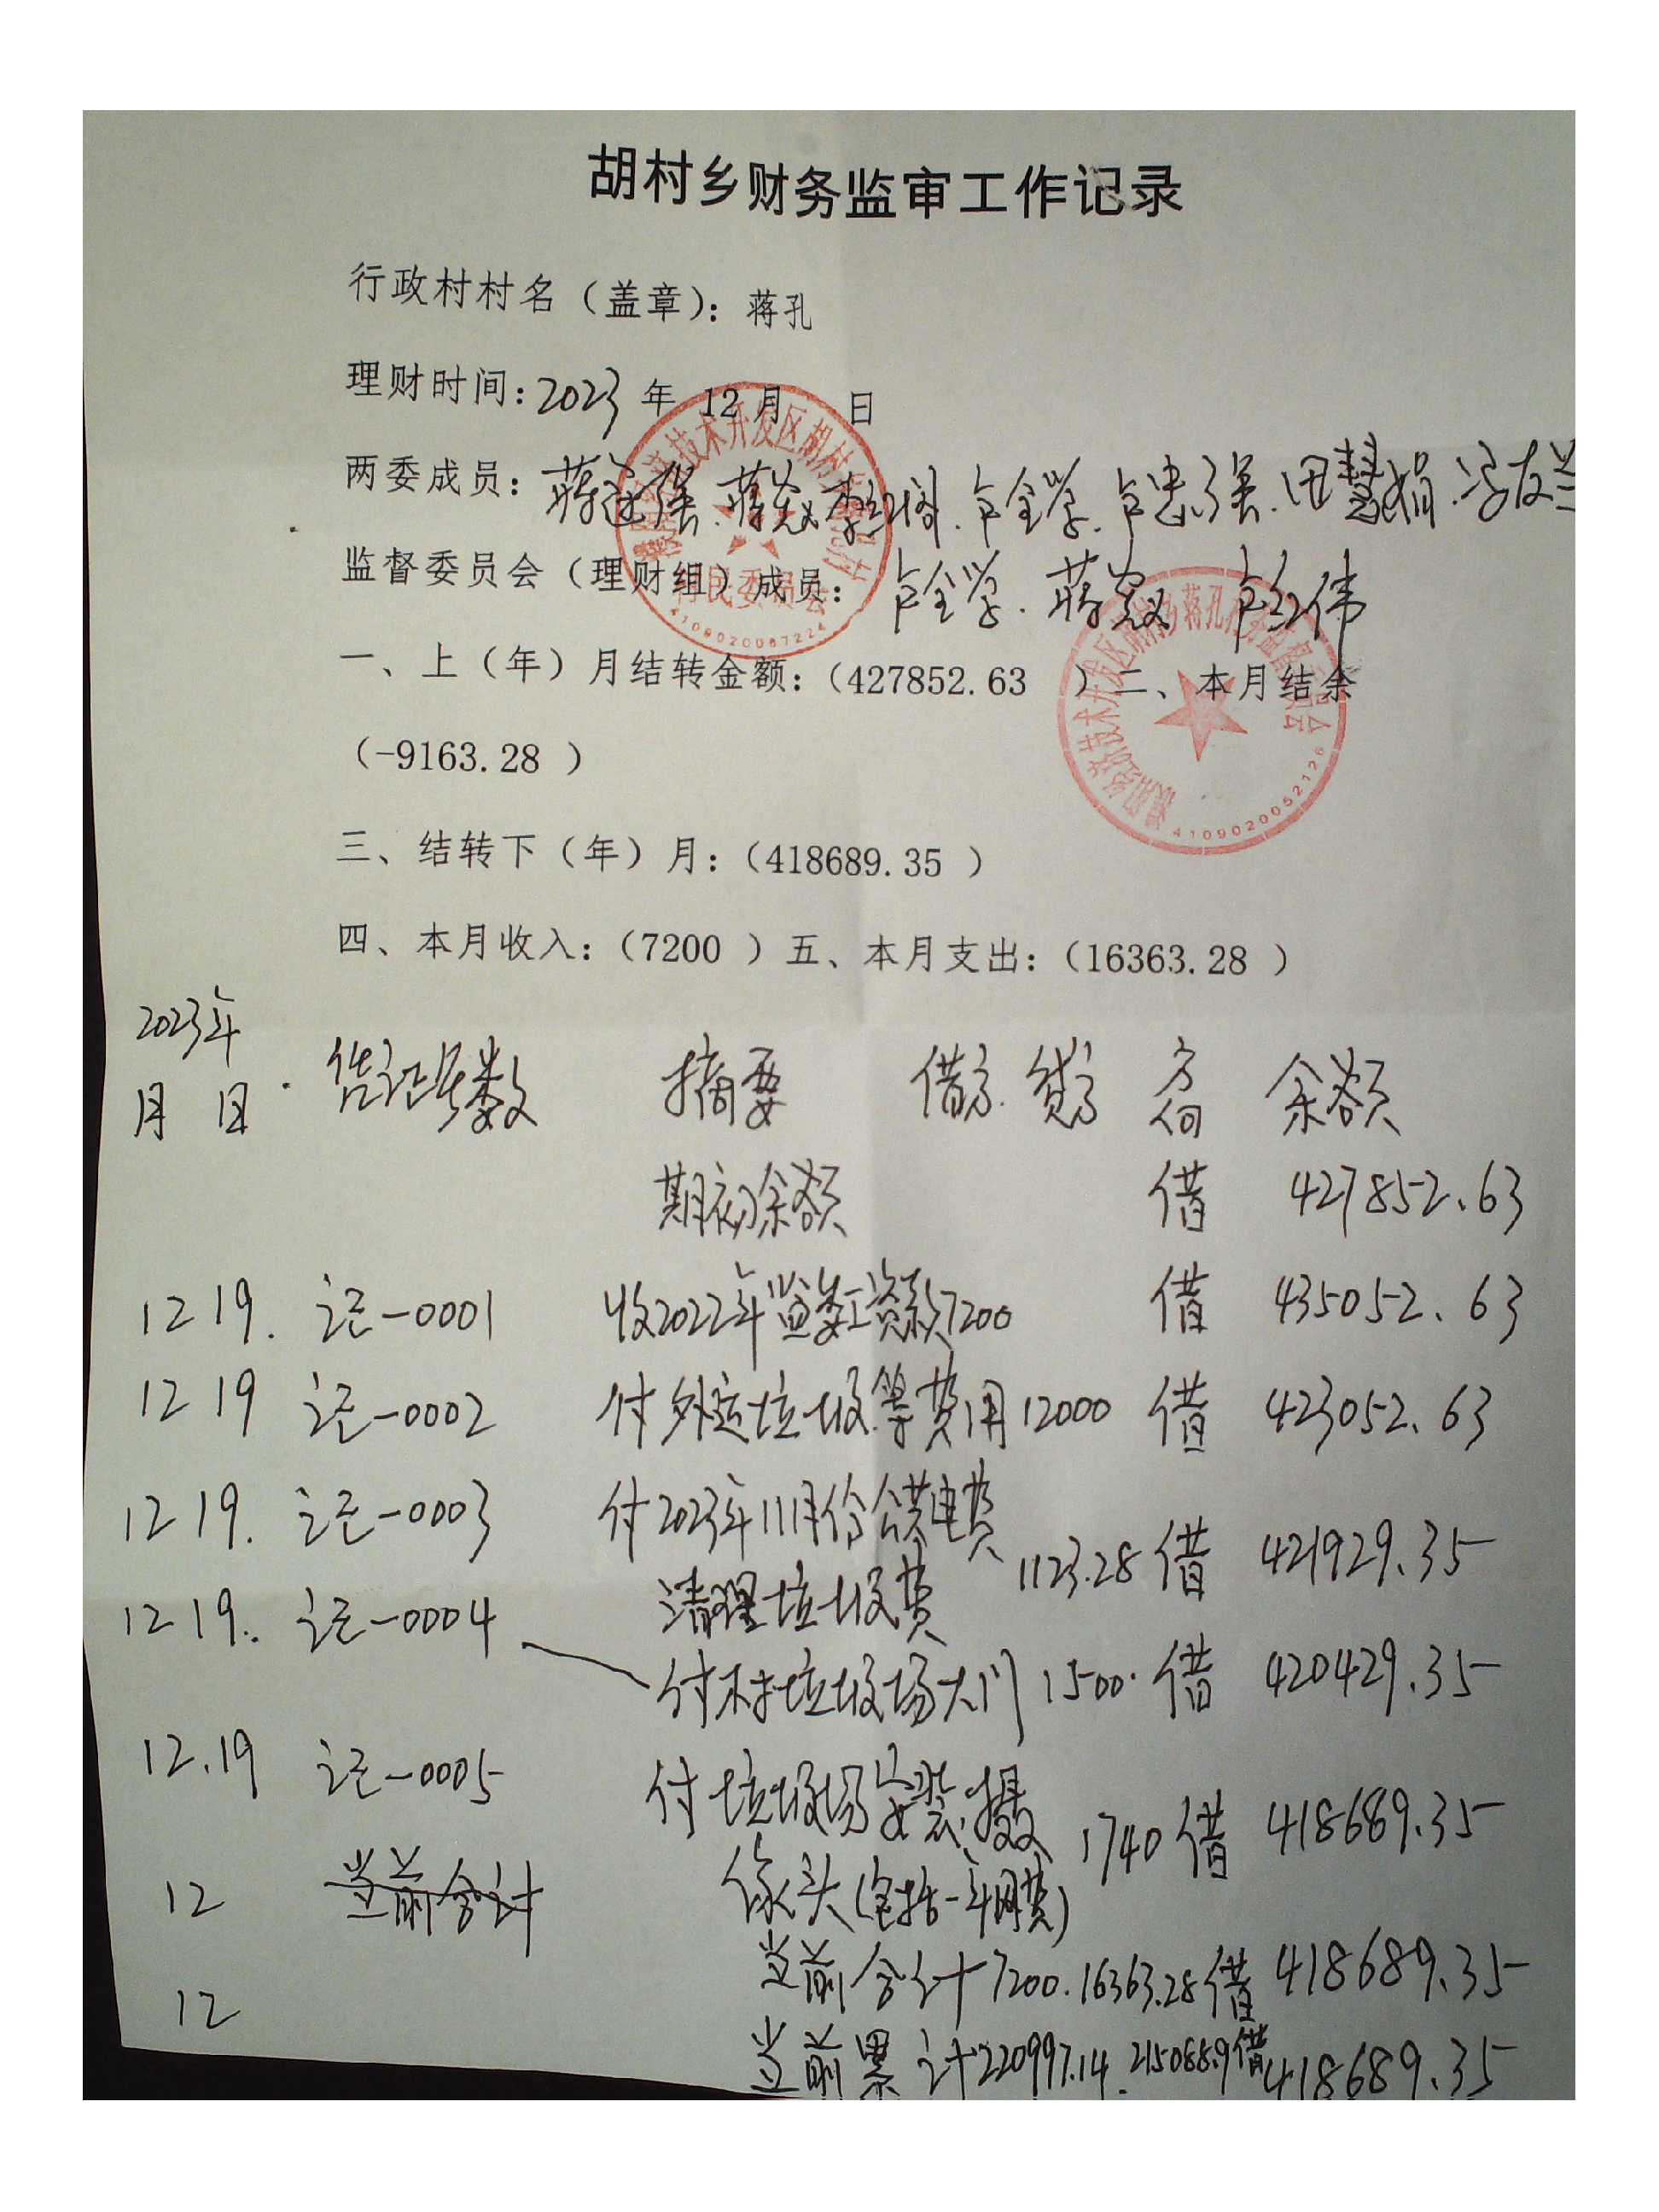 胡村乡财务监审工作记录
行政村村名（盖章）：蒋孔
理财时间：2023 年 12 月 日
两委成员：蒋进强、蒋焱、李红阁、卢全学、卢忠强、田慧娟、冯友兰
监督委员会（理财组）成员：卢全学、蒋焱 卢红伟
一、上（年）月结转金额：（427852.63 ）二、本月结余
（-9163.28 ）
三、结转下（年）月：（418689.35 ）
四、本月收入：（7200 ）五、本月支出：（16363.28 ）
2023年
月 日 凭证号数 摘要 借方 贷方 方向 余额
期初余额 借 427852.63
12 19. 记-0001 收2022年监委工资款7200 借 435052.63
12 19 记-0002 付外运垃圾等费用12000 借 423052.63
12 19. 记-0003 付2023年11月份公共电费
清理垃圾费 1123.28 借 421929.35
12 19. 记-0004 付村垃圾场大门 1500. 借 420429.35
12.19 记-0005 付垃圾场安装摄
像头（包括一年网费） 1740 借 418689.35
12 当前合计 7200. 16363.28 借 418689.35
12 当前累计 220997.14. 215088.9 借 418689.35
村民委员会
4109020087224
4109020052126